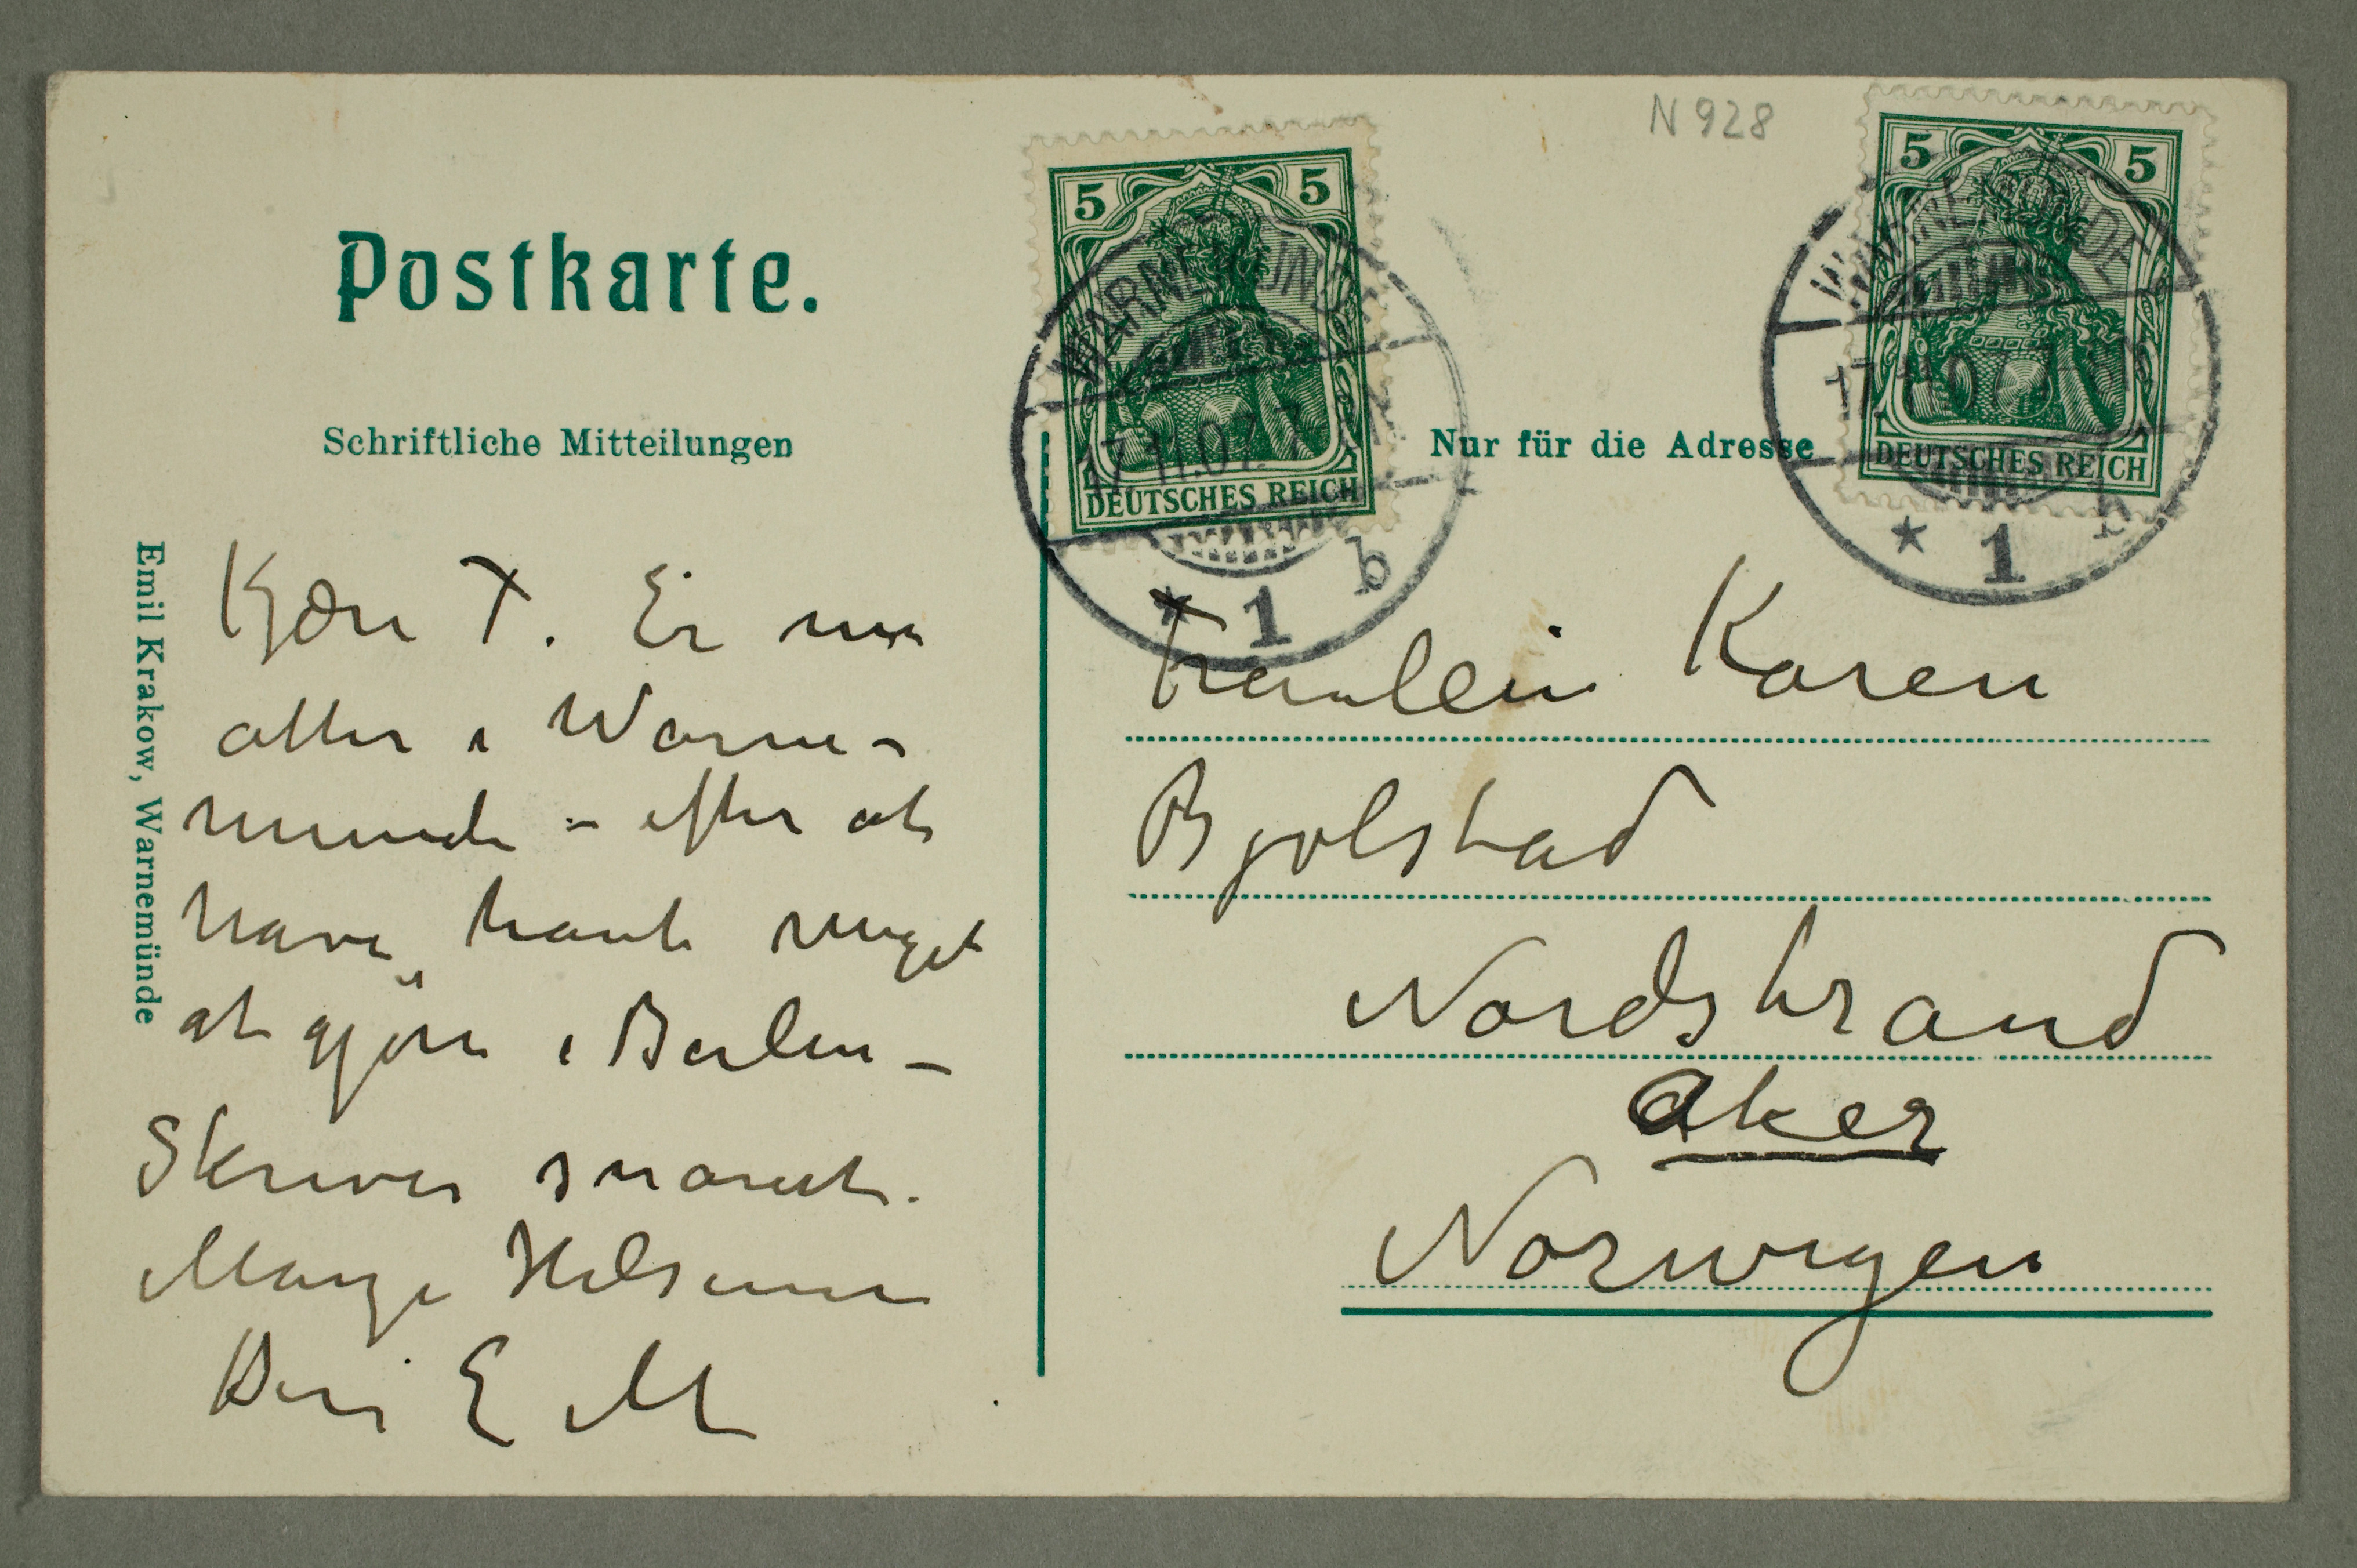 N 928
5 5
DEUTSCHES REICH
WARNEMÜNDE
17.11.07. 7
* 1 b
5 5
DEUTSCHES REICH
WARNEMÜNDE
17.11.07. 7
* 1 b
Postkarte.
Schriftliche Mitteilungen
Nur für die Adresse
Emil Krakow, Warnemünde
Kjære T. Er nu
atter i Warne-
munde – efter at
have havt meget
at gjöre i Berlin –
Skriver snarest.
Mange Hilsener
Din E M
Fraulein Karen
Bjølstad
Nordstrand
Aker
Norwegen